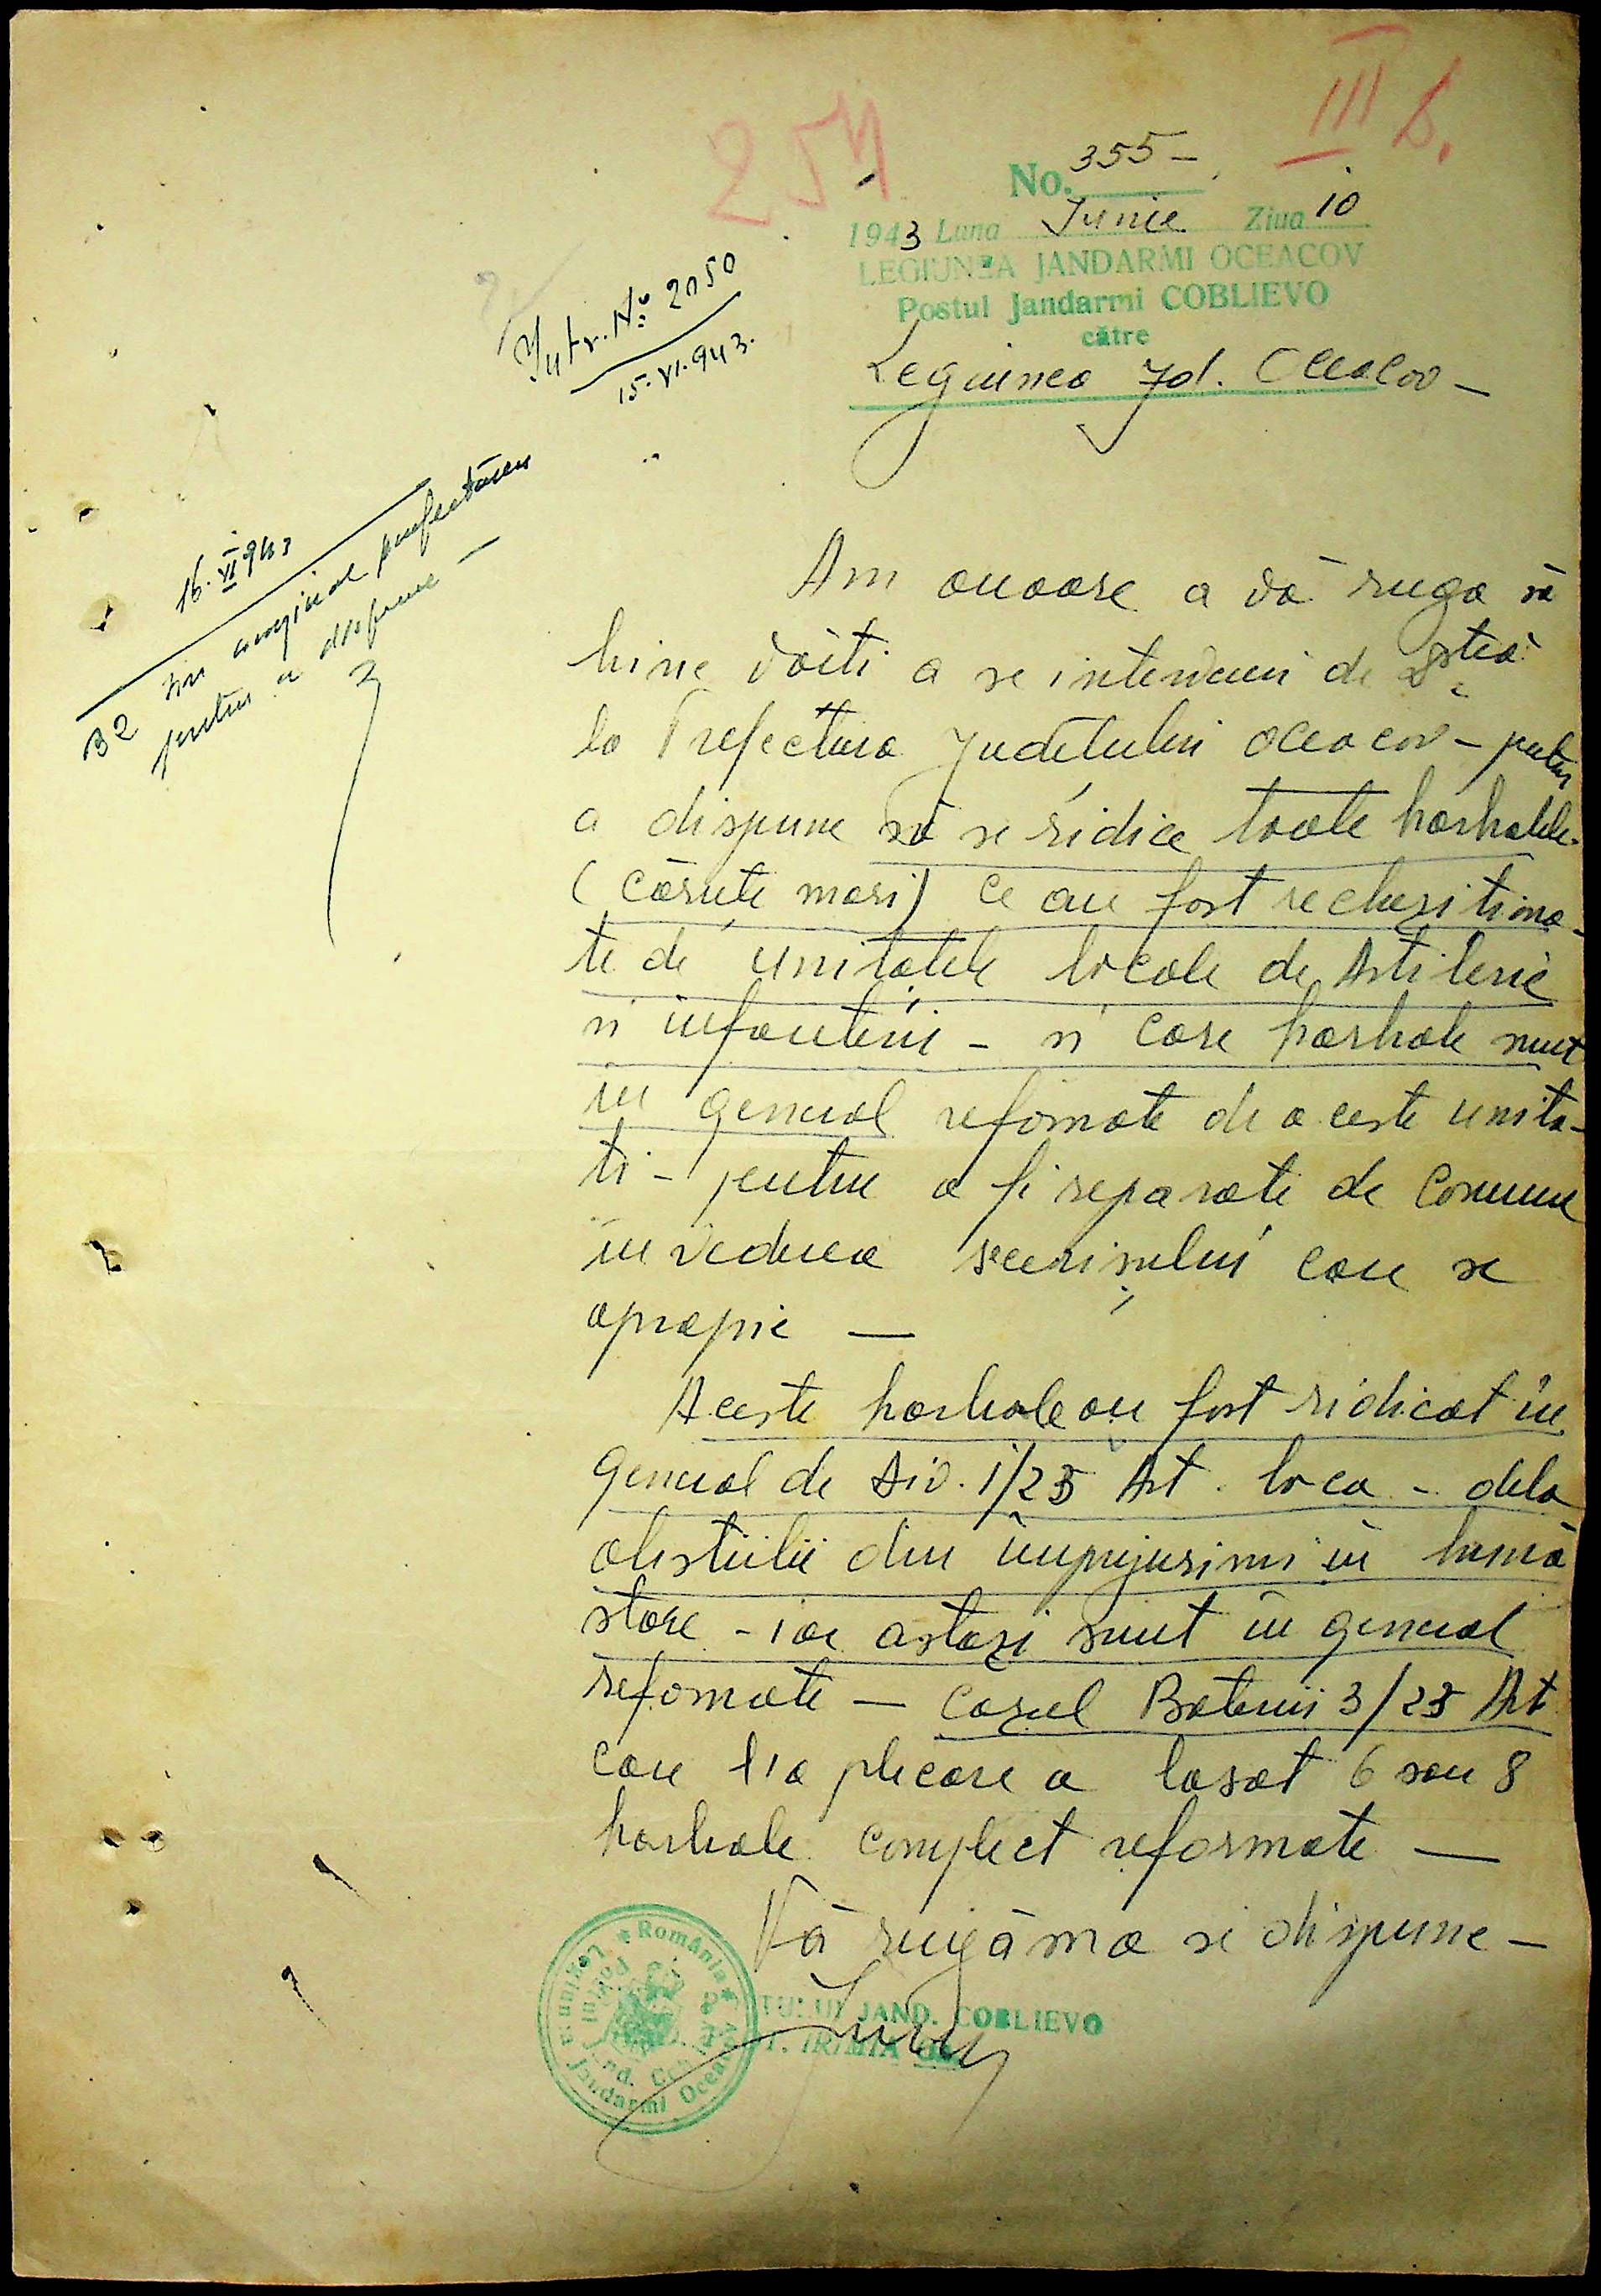 257
III b.
No. 355 –
1943 Luna Iunie Ziua 10
LEGIUNEA JANDARMI OCEACOV
Postul Jandarmi COBLIEVO
către
Legiunea Jd. Oceacov –
Intr. No 2050
15.VI.943.
16.VI 943
B2 în original prefecturei
pentru a dispune –
Am onoare a vă ruga să
bine voiti a se interveni de Dvs
la Prefectura Județului Oceacov – pentru
a dispune să se ridice toate harbalele
(căruțe mari) ce au fost rechizitiona-
te de unitățile locale de Artilerie
și infanterie – și care harbale sunt
în general refomate de aceste unita-
ti – pentru a fi reparate de Comune
în vederea secerișului care se
apropie —
Aceste harbale au fost ridicat în
general de Div. 1/23 Art. loco – dela
obstiile din împrejurimi în bună
stare – iar astazi sunt în general
refomate — Cazul Bateriei 3/23 Art
care l'a plecare a lasat 6 sau 8
harbale complect reformate —
Vă rugăm a se dispune –
România
Legiunea Jandarmi Oceacov
TULUI JAND. COBLIEVO
IRIMIA